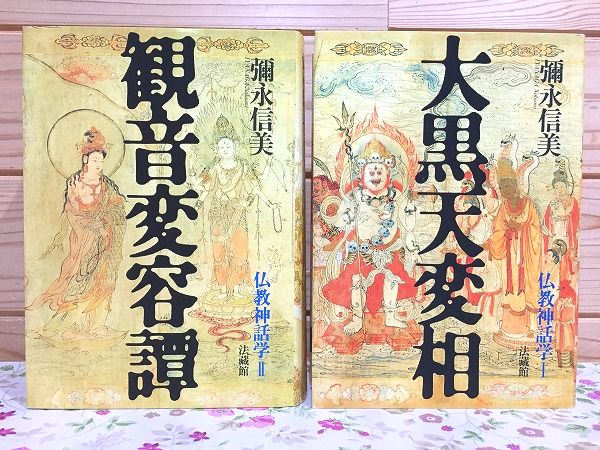 観音変容譚
彌永信美
仏教神話学Ⅱ
法藏館
大黒天変相
彌永信美
仏教神話学Ⅰ
法藏館